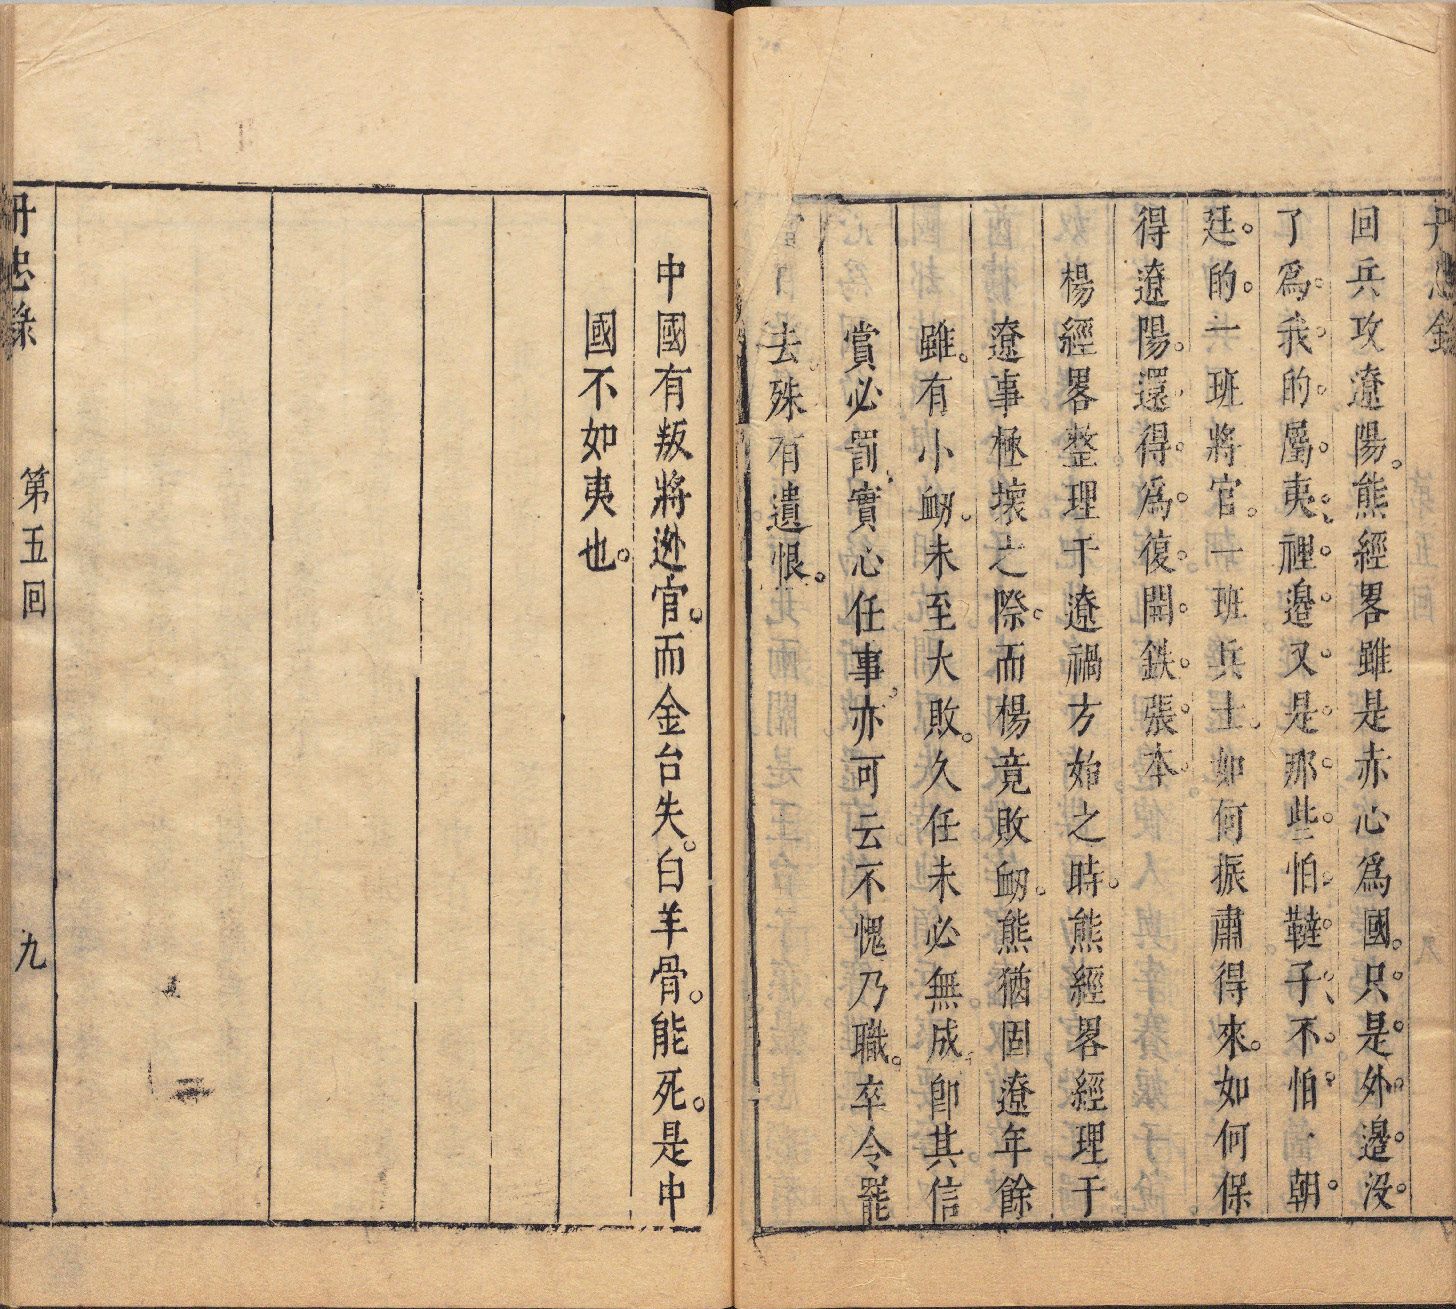 丹忠錄
回兵攻遼陽。熊經畧雖是赤心爲國。只是外邊没
了爲我的屬夷。裡邊又是那些怕韃子。不怕朝
廷。的一班將官。一班兵士。如何振肅得來。如何保
得遼陽。還得爲復開鉄張本。
楊經畧整理于遼禍方始之時。熊經畧經理于
遼事極壞之際。而楊竟敗衂。熊猶固遼年餘
雖。有小衂。未至大敗。久任未必無成。卽其信
賞必罰。實心任事。亦可云不愧乃職。卒令罷
去。殊有遺恨。
中國有叛將逊官。而金台失。白羊骨。能死。是中
國不如夷也。
丹忠錄
第五回
九